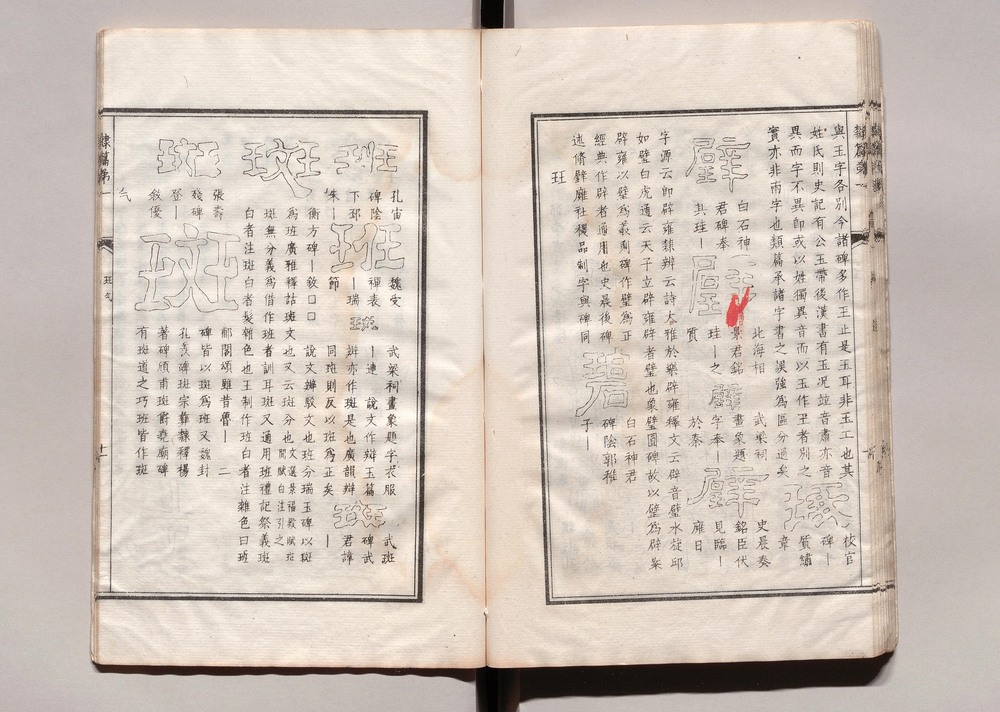 與玉字各別今諸碑多作王止是玉耳非玉工也其
姓氏則史記有公玉帶後漢書有玉况竝音肅亦音
異而字不異即或以姓獨異音而以玉作王者別之
實亦非兩字也類篇承諸字書之誤強為區分過矣
校官
碑｜
質繡
章
史晨奏
銘臣伏
見臨｜
雍日
武梁祠
畫象題
字奉｜
於秦
北海相
景君銘
珪｜之
質
白石神
君碑奉
其珪｜
字源云即辟雍隸辨云詩大雅於樂辟雍釋文云辟音璧水旋邱
如璧白虎通云天子立辟雍辟者璧也象璧圓碑故以璧為辟槩
辟雍以璧為義則碑作璧為正
經典作辟者通用也史晨後碑
述脩辟雍社稷品制字與碑同
碧
白石神君
碑陰郭稚
子｜
玨
班
孔宙
碑陰
下邳
朱｜
班
魏受
禪表
｜瑞
節
武梁祠畫象題字衣服
｜連　說文作辬玉篇
辬亦作斑是也廣韻辬
同斑則反以斑為正矣
武斑
碑武
君諱
斑
衡方碑｜敘口口　說文辬駁文也班分瑞玉碑以斑
為班廣雅釋詁斑文也又云斑分也文選景福殿賦班
閒賦白注引之
斑無分義為借作班者訓耳班又通用班禮記祭義斑
白者注斑白者髮雜色也王制作班白者注雜色曰班
斑
張壽
殘碑
登｜
敘優
斑
郙閣頌雖昔魯｜二
碑皆以斑為班又魏封
孔羨碑斑宗彝隸釋楊
著碑頎甫班爵堯廟碑
有班道之巧班皆作斑
气
隸篇第一
玨气
十一